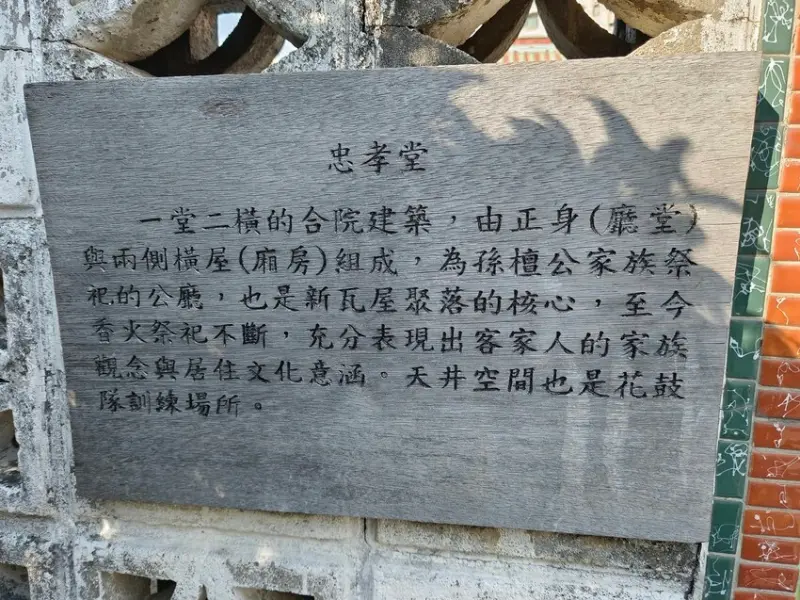 忠孝堂
一堂二橫的合院建築，由正身(廳堂)
與兩側橫屋(廂房)組成，為孫檀公家族祭
祀的公廳，也是新瓦屋聚落的核心，至今
香火祭祀不斷，充分表現出客家人的家族
觀念與居住文化意涵。天井空間也是花鼓
隊訓練場所。